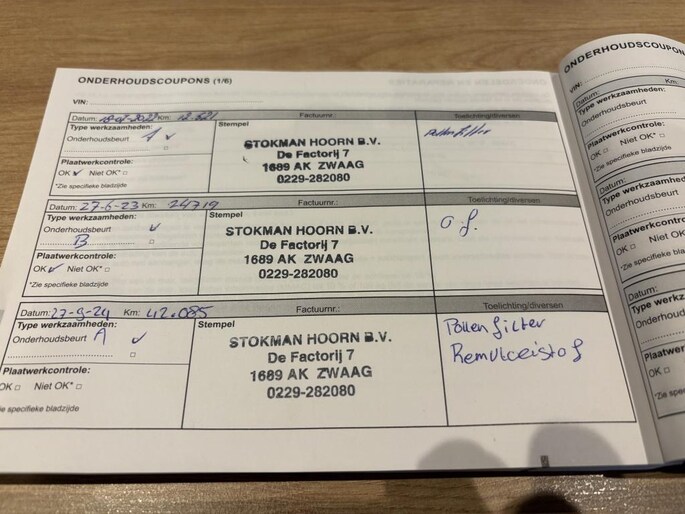 ONDERHOUDSCOUPONS (1/6)
VIN:
Datum: Km: Factuurnr.: Toelichting/diversen
Type werkzaamheden: A Stempel
Onderhoudsbeurt
STOKMAN HOORN B.V.
De Factorij 7
1689 AK ZWAAG
0229-282080
Pollenfilter
Plaatwerkcontrole:
OK Niet OK*
*Zie specifieke bladzijde
Datum: 27-6-23 Km: 24719 Factuurnr.: Toelichting/diversen
Type werkzaamheden: Stempel
Onderhoudsbeurt
B
STOKMAN HOORN B.V.
De Factorij 7
1689 AK ZWAAG
0229-282080
Plaatwerkcontrole:
OK Niet OK*
*Zie specifieke bladzijde
Datum: 27-9-24 Km: 42.085 Factuurnr.: Toelichting/diversen
Type werkzaamheden: Stempel
Onderhoudsbeurt A
STOKMAN HOORN B.V.
De Factorij 7
1689 AK ZWAAG
0229-282080
Pollenfilter
Remvloeistof
Plaatwerkcontrole:
OK Niet OK*
*Zie specifieke bladzijde
ONDERHOUDSCOUPON
VIN:
Datum: Km:
Type werkzaamheden:
Onderhoudsbeurt
Plaatwerkcontrole:
OK Niet OK*
*Zie specifieke bladzijde
Datum:
Type werkzaamheden
Onderhoudsbeurt
Plaatwerkcontrole:
OK Niet OK
*Zie specifieke bladz
Datum:
Type werkz
Onderhoudsb
Plaatwerkco
OK